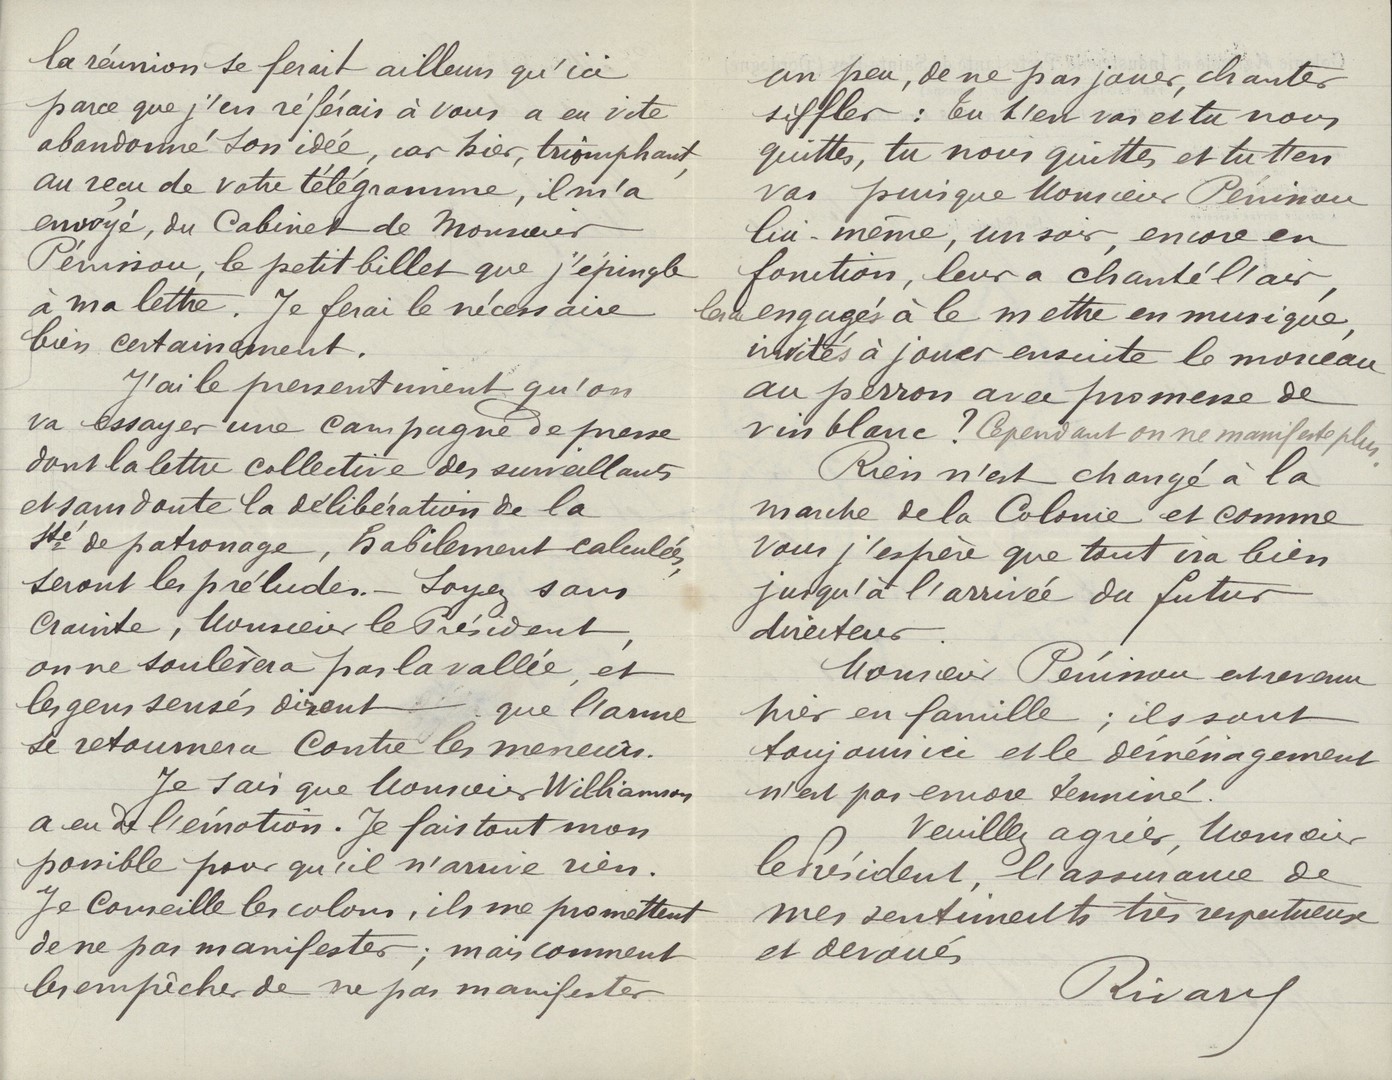 la réunion se ferait ailleurs qu'ici
parce que j'en référais à vous a eu vite
abandonné son idée, car hier, triomphant,
au reçu de votre télégramme, il m'a
envoyé, du Cabinet de Monsieur
Péninou, le petit billet que j'épingle
à ma lettre. Je ferai le nécessaire
bien certainement.
J'ai le pressentiment qu'on
va essayer une campagne de presse
dont la lettre collective des surveillants
et sans doute la délibération de la
Sté de patronage, habilement calculés,
seront les préludes. - Soyez sans
crainte, Monsieur le Président,
on ne soulèvera pas la vallée, et
les gens sensés disent que l'arme
se retournera contre les meneurs.
Je sais que Monsieur Williamson
a eu de l'émotion. Je fais tout mon
possible pour qu'il n'arrive rien.
Je conseille les colons, ils me promettent
de ne pas manifester ; mais comment
les empêcher de ne pas manifester
un peu, de ne pas jouer, chanter
siffler : Tu t'en vas et tu nous
quittes, tu nous quittes et tu t'en
vas puisque Monsieur Péninou
lui-même, un soir, encore en
fonction, leur a chanté l'air,
les a engagés à le mettre en musique,
invités à jouer ensuite le morceau
au perron avec promesse de
vin blanc ? Cependant on ne manifeste plus.
Rien n'est changé à la
marche de la Colonie et comme
vous j'espère que tout ira bien
jusqu'à l'arrivée du futur
directeur.
Monsieur Péninou est revenu
hier en famille ; ils sont
toujours ici et le déménagement
n'est pas encore terminé.
Veuillez agréer, Monsieur
le Président, l'assurance de
mes sentiments très respectueux
et dévoués